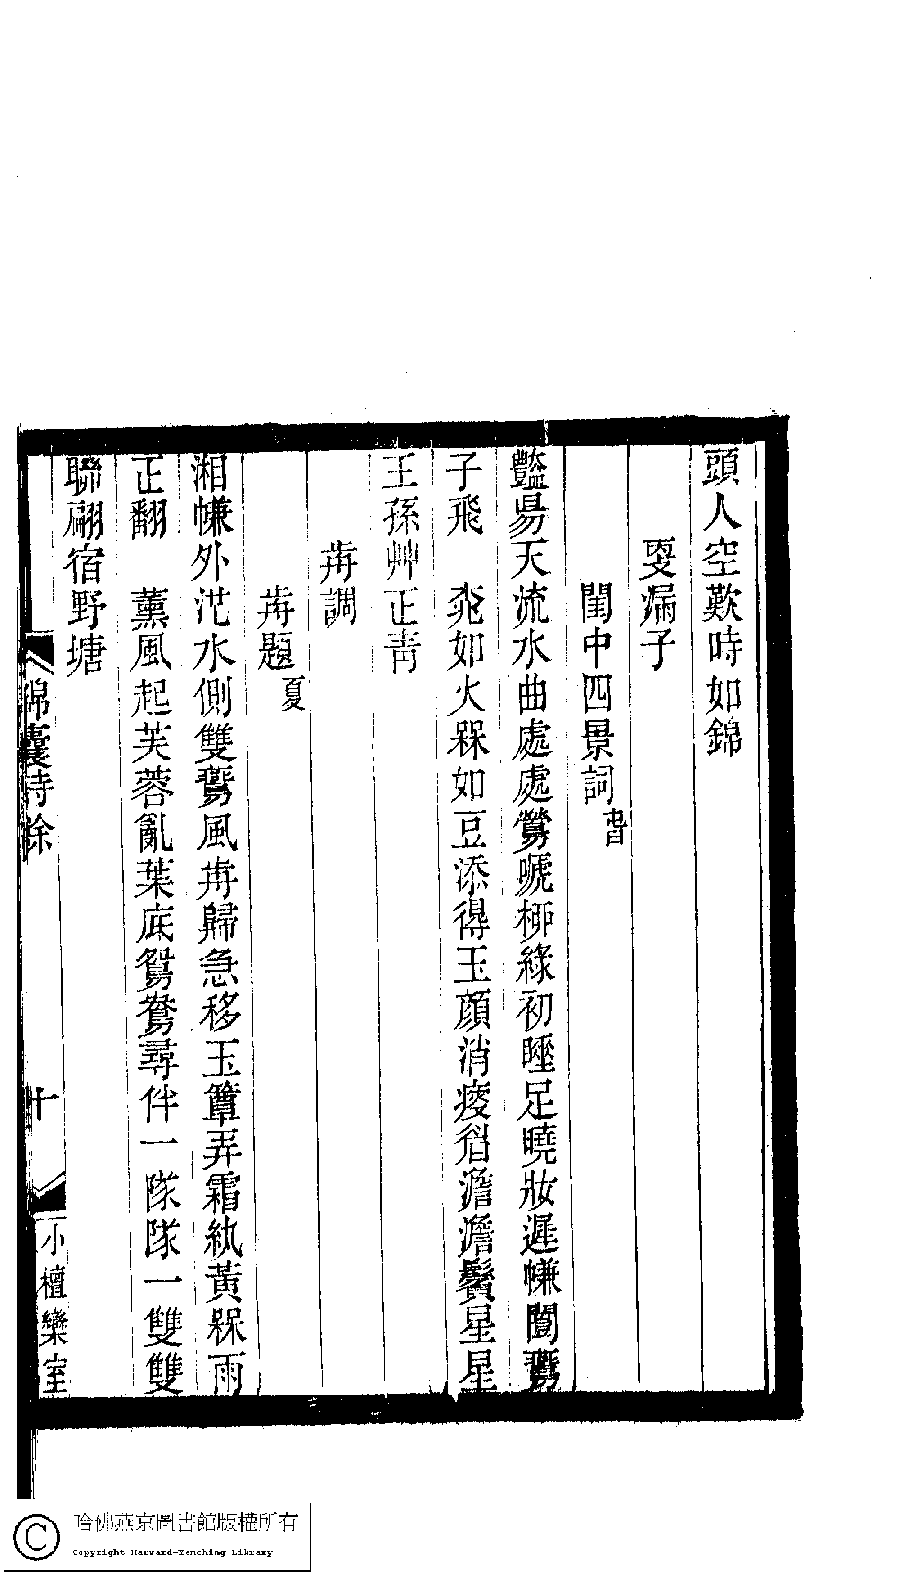 頭人空歎時如錦
㪅漏子
閨中四景詞 旾
豔昜天流水曲處處鶯嗁桺綠初睡足曉妝遲㡘鷰
子飛　桃如火槑如豆添得玉顏消瘦眉澹澹鬢星星
王孫艸正靑
歬調
歬題 夏
湘㡘外水側雙鷰風歬歸急移玉簟弄霜紈黃槑雨
正翻　薰風起芙蓉亂葉底鴛鴦尋伴一隊隊一雙雙
聯翩宿野塘
錦囊詩餘
十
小檀欒室
哈佛燕京圖書館版權所有
Copyright Harvard-Yenching Library